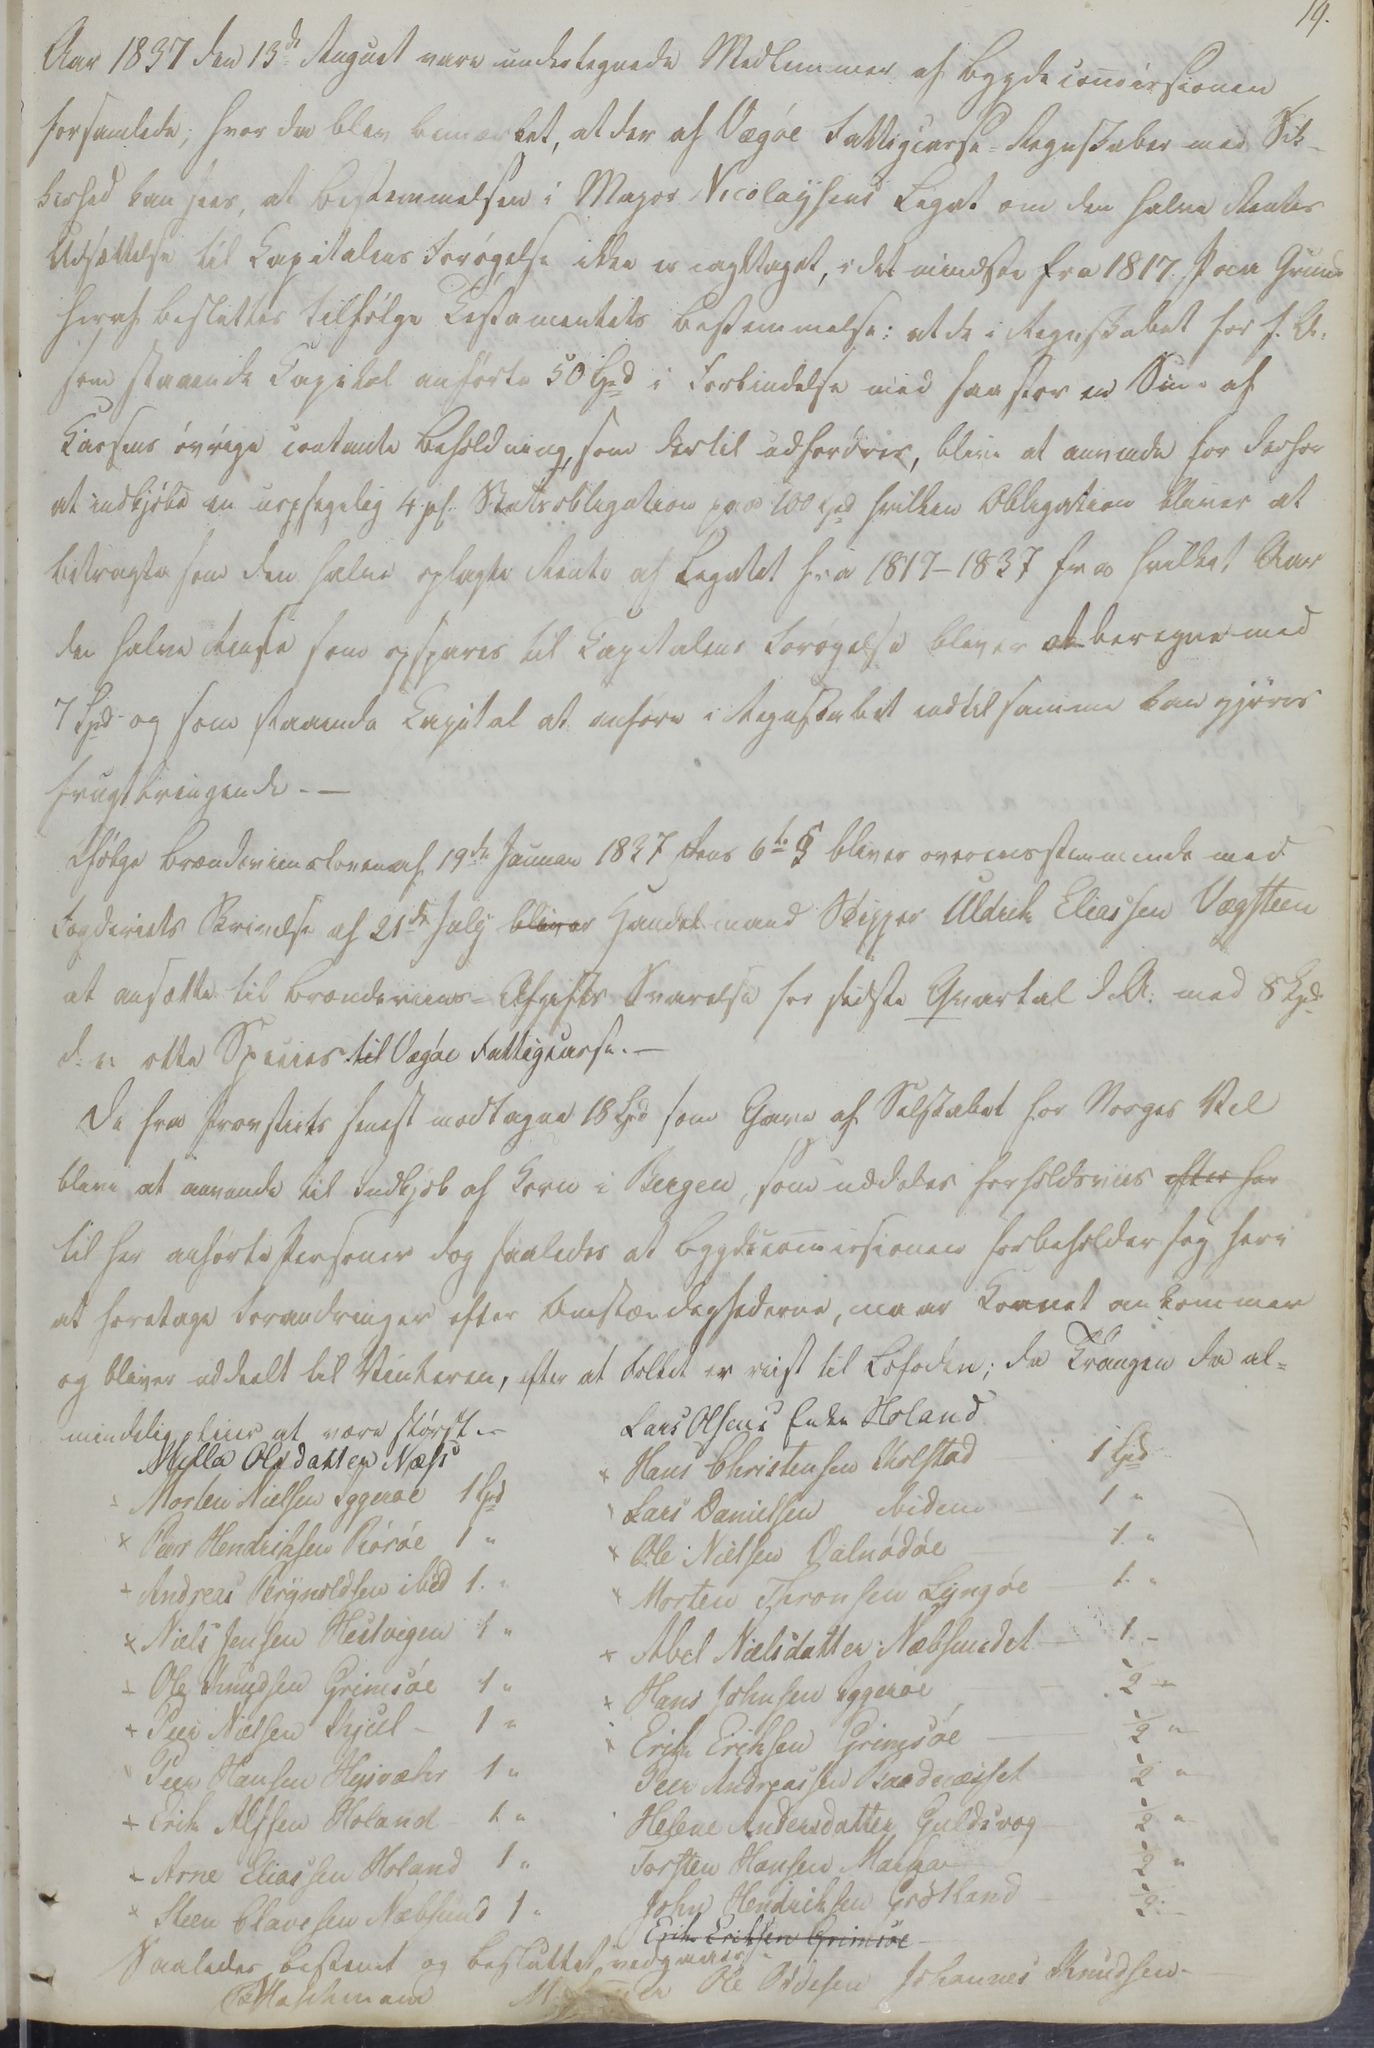 19.
Aar 1837 den 13de August vare undertegnede Medlemmer af Bygdecommissionen
forsamlede; hvor da blev bemærket, at der af Vegøe Fattigcasse-Regnskaber med Sik-
kerhed kan sees, at bestemmelsen i Major Nicolaysens Legat om den halve Rentes
Udsættelse til Capitalens Forøgelse ikke er iagttaget, i det mindste fra 1817. Paa Grund
heraf besluttes tilfølge Testamentets bestemmelse: at de i Regnskabet for f. A.
som staaende Capital anførte 50 Spd i Forbindelse med saa stor en Sum af
Cassens øvrige contante beholdning, som dertil udfordres, blive at anvende for derfor
at indkjøbe en uopsigelig 4 pC. Statsobligation paa 100 Spd hvilken Obligation bliver at
betragte som den halve oplagte Rente af Legatet fra 1817-1837 fra hvilket Aar
den halve Rente som opspares til Capitalens Forøgelse bliver at beregne med
7 Spd og som staaende Capital at anføre i Regnskabet indtil samme kan gjøres
frugtbringende. —
Ifølge Brændeviinsloven af 19de Januar 1837 dens 6te § bliver overensstemmende med
Fogderiets Skrivelse af 21de July bliver Handelsmand Skipper Uldrik Eliassen Vegsteen
at ansætte til Brændeviins-Afgifts Svarelse for sidste Qvartal d. A. med 8 Spd
d. e. otte Species til Vegøe Fattigcasse. —
De fra Provstiets senest modtagne 18 Spd som Gave af Selskabet for Norges Vel
blive at anvende til Indkjøb af Korn i Bergen, som uddeles forholdsviis efter her
til her anførte Personer dog saaledes at Bygdecommissionen forbeholder sig heri
at foretage Forandringer efter Omstændighederne, naar Kornet ankommer
og bliver uddeelt til Vinteren, efter at Folket er reist til Lofoden; da Trangen da al-
mindeligviis at være størst. —
Milla Olsdatter Næss
× Morten Nielsen Yggeroe 1 Spd
× Peer Hendriksen Rørøe 1 "
× Andreas Brynoldsen ibid 1. "
× Niels Jensen Hestvigen 1 "
× Ole Knudsen Grimsøe 1 "
× Peer Nielsen Skjul - 1 "
× Peer Hansen Heisvæhr 1 "
× Erik Alfsen Holand 1. "
× Arne Eliassen Holand 1 "
× Steen Clavesen Næbsund 1 "
Lars Olsens Enke Holand
× Hans Christensen Kolstad 1 Spd
Lars Danielsen ibidem 1 "
× Ole Nielsen Dalnødøe 1. "
× Morten Thronsen Lyngøe 1. "
× Abel Nielsdatter Næbsundet — 1 -
× Hans Johnsen Yggeroe ½ "
Erik Eriksen Grimsøe — ½ "
Peer Andreassen Bardnæsset ½ "
Helene Andersdatter Guldsvog ½ "
Torsten Hansen ½ "
John Hendriksen Grøtland ½ -
Erik Eriksen Grimsøe
Saaledes bestemt og besluttet, vedgaaes.
Ole Johannes Knudsen